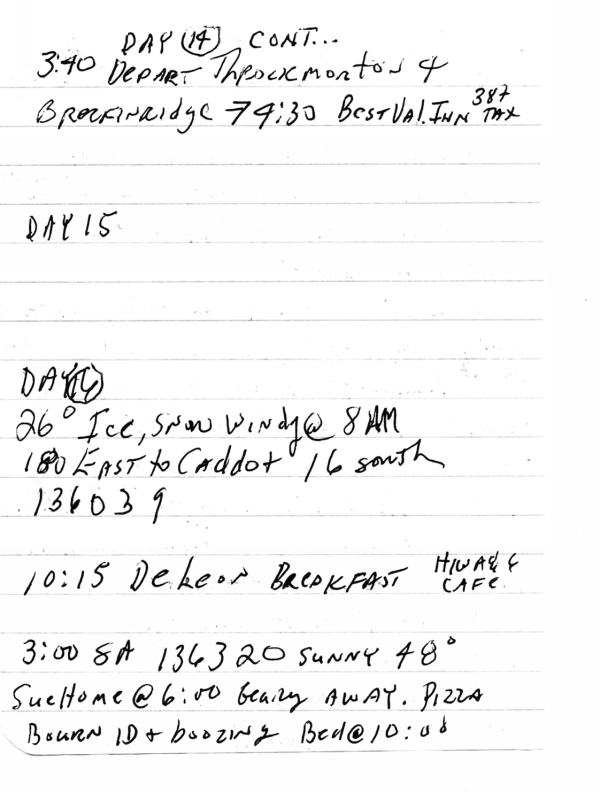 DAY (14) CONT...
3:40 DEPART Throckmorton 4
BreckinRidge → 4:30 BEST VAL. INN 387 TAX
DAY 15
DAY (16)
26° Ice, SNOW WINDY @ 8 AM
180 EAST to Caddo + 16 south
136039
10:15 DeLeon BREAKFAST HIWAY 6 CAFE
3:00 SA 136320 SUNNY 48°
Sue Home @ 6:00 AWAY. PIZZA
BOURN ID + boozing Bed @ 10:00